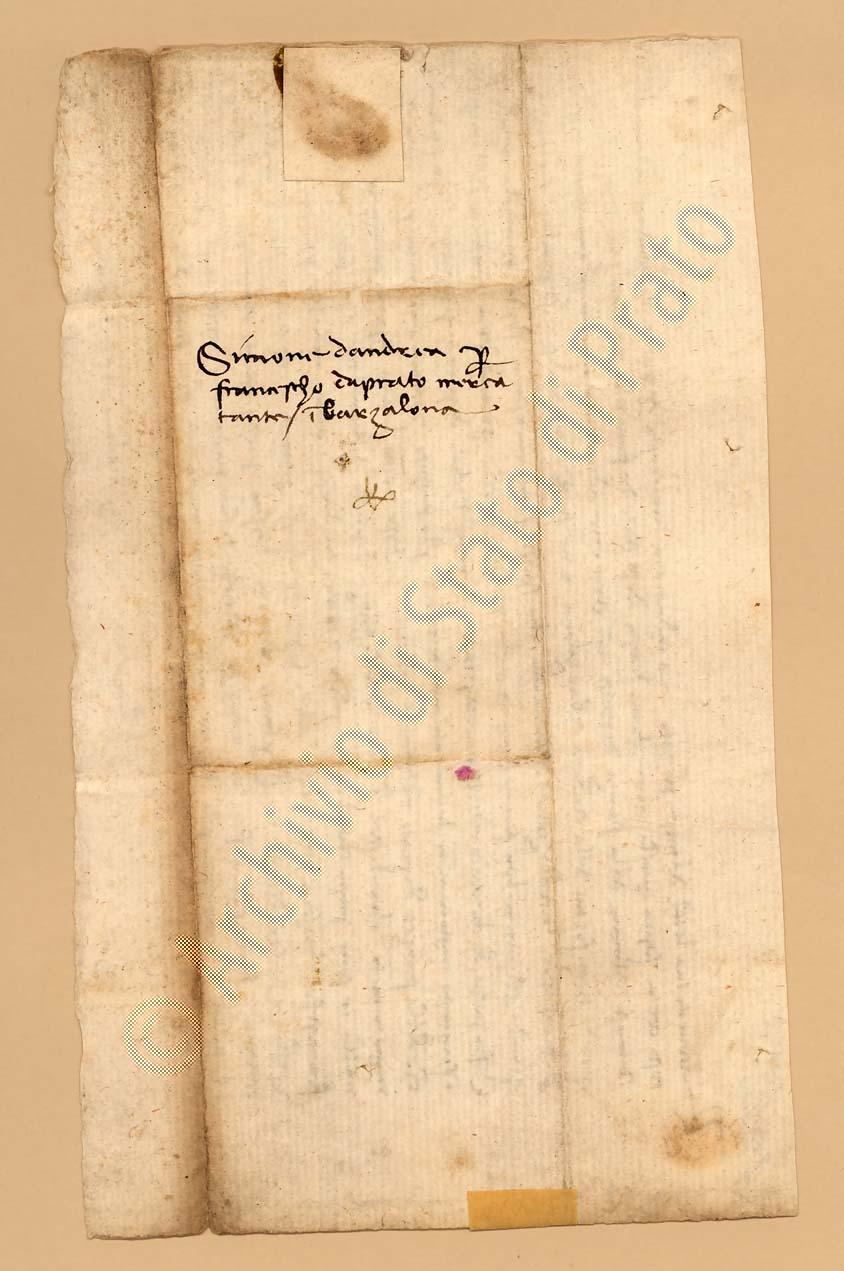 Simone dandrea p
franciescho daprato merca
tante / i barzalona
© Archivio di Stato di Prato